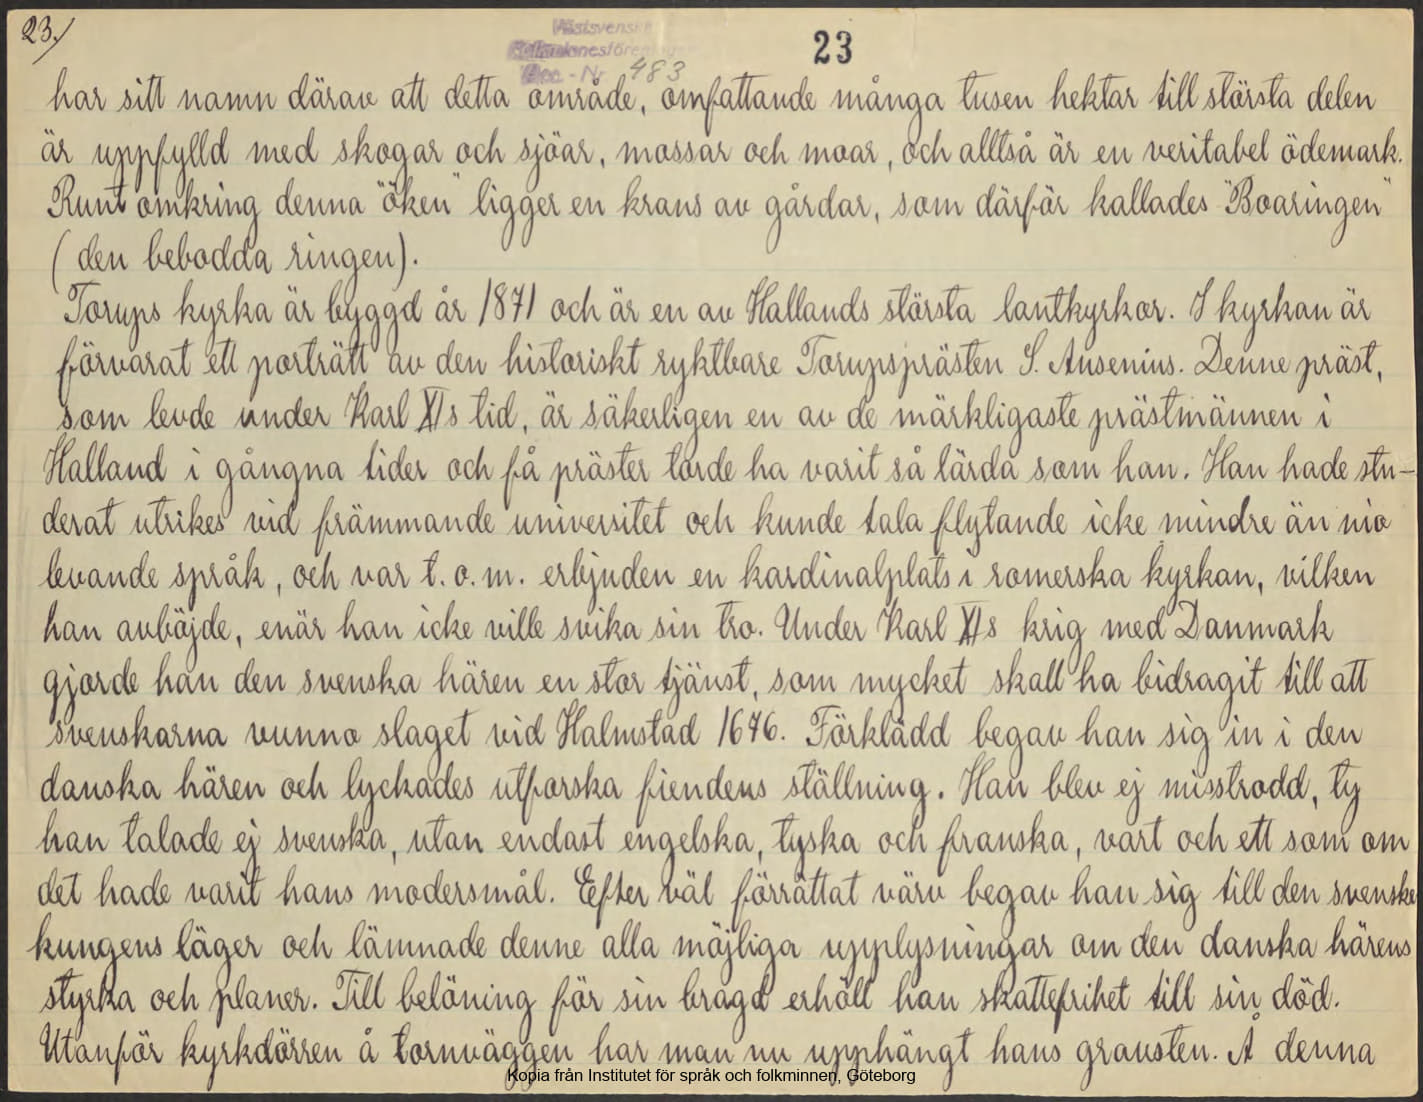 23.)
Västsvenska
Folkminnesföreningen
Acc. - Nr 483
23
har sitt namn därav att detta område, omfattande många tusen hektar till största delen
är uppfylld med skogar och sjöar, mossar och moar, och alltså är en veritabel ödemark.
Runt omkring denna "öken" ligger en krans av gårdar, som därför kallades "Boaringen"
(den bebodda ringen).
Torups kyrka är byggd år 1871 och är en av Hallands största lantkyrkor. I kyrkan är
förvarat ett porträtt av den historiskt ryktbare Torupsprästen S. Ausenius. Denne präst,
som levde under Karl XIs tid, är säkerligen en av de märkligaste prästmännen i
Halland i gångna tider och få präster torde ha varit så lärda som han. Han hade stu-
derat utrikes vid främmande universitet och kunde tala flytande icke mindre än nio
levande språk, och var t.o.m. erbjuden en kardinalplats i romerska kyrkan, vilken
han avböjde, enär han icke ville svika sin tro. Under Karl XIs krig med Danmark
gjorde han den svenska hären en stor tjänst, som mycket skall ha bidragit till att
svenskarna vunno slaget vid Halmstad 1676. Förklädd begav han sig in i den
danska hären och lyckades utforska fiendens ställning. Han blev ej misstrodd, ty
han talade ej svenska, utan endast engelska, tyska och franska, vart och ett som om
det hade varit hans modersmål. Efter väl förrättat värv begav han sig till den svenske
kungens läger och lämnade denne alla möjliga upplysningar om den danska härens
styrka och planer. Till belöning för sin bragd erhöll han skattefrihet till sin död.
Utanför kyrkdörren å tornväggen har man nu upphängt hans gravsten. Å denna
Kopia från Institutet för språk och folkminnen, Göteborg